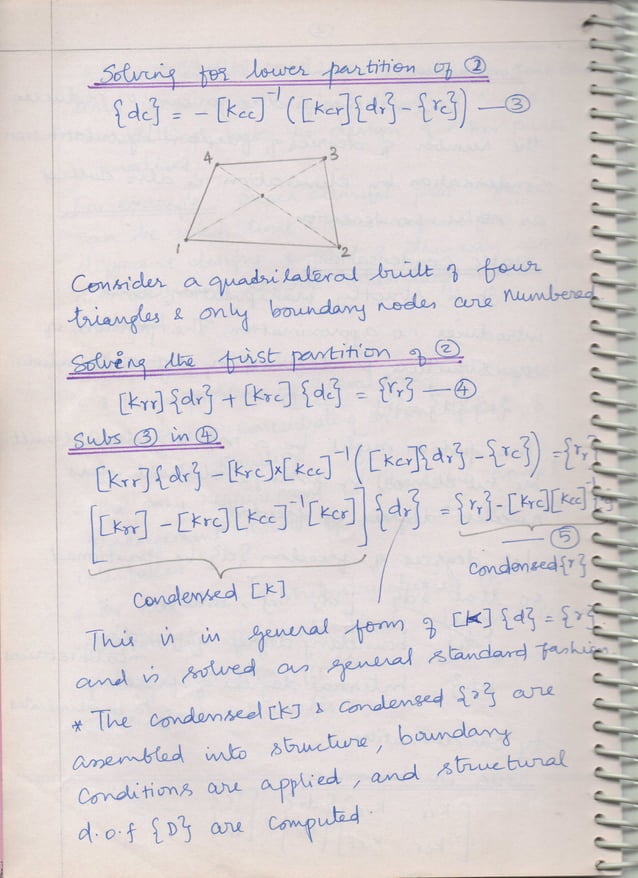 Solving for lower partition of ②
{dc} = - [Kcc]⁻¹ ([Kcr]{dr} - {rc}) — ③
4 3
1 2
Consider a quadrilateral built of four
triangles & only boundary nodes are numbered.
Solving the first partition of ②
[Krr]{dr} + [Krc] {dc} = {rr} — ④
Subs ③ in ④
[Krr]{dr} - [Krc]x[Kcc]⁻¹ ([Kcr]{dr} - {rc}) = {rr}
[[Krr] - [Krc] [Kcc]⁻¹ [Kcr]] {dr} = {rr} - [Krc][Kcc]⁻¹
— ⑤
Condensed [K] Condensed {r}
This is in general form of [K] {d} = {r}
and is solved as general standard fashion.
* The condensed [K] & condensed {r} are
assembled into structure, boundary
Conditions are applied, and structural
d.o.f {D} are computed.